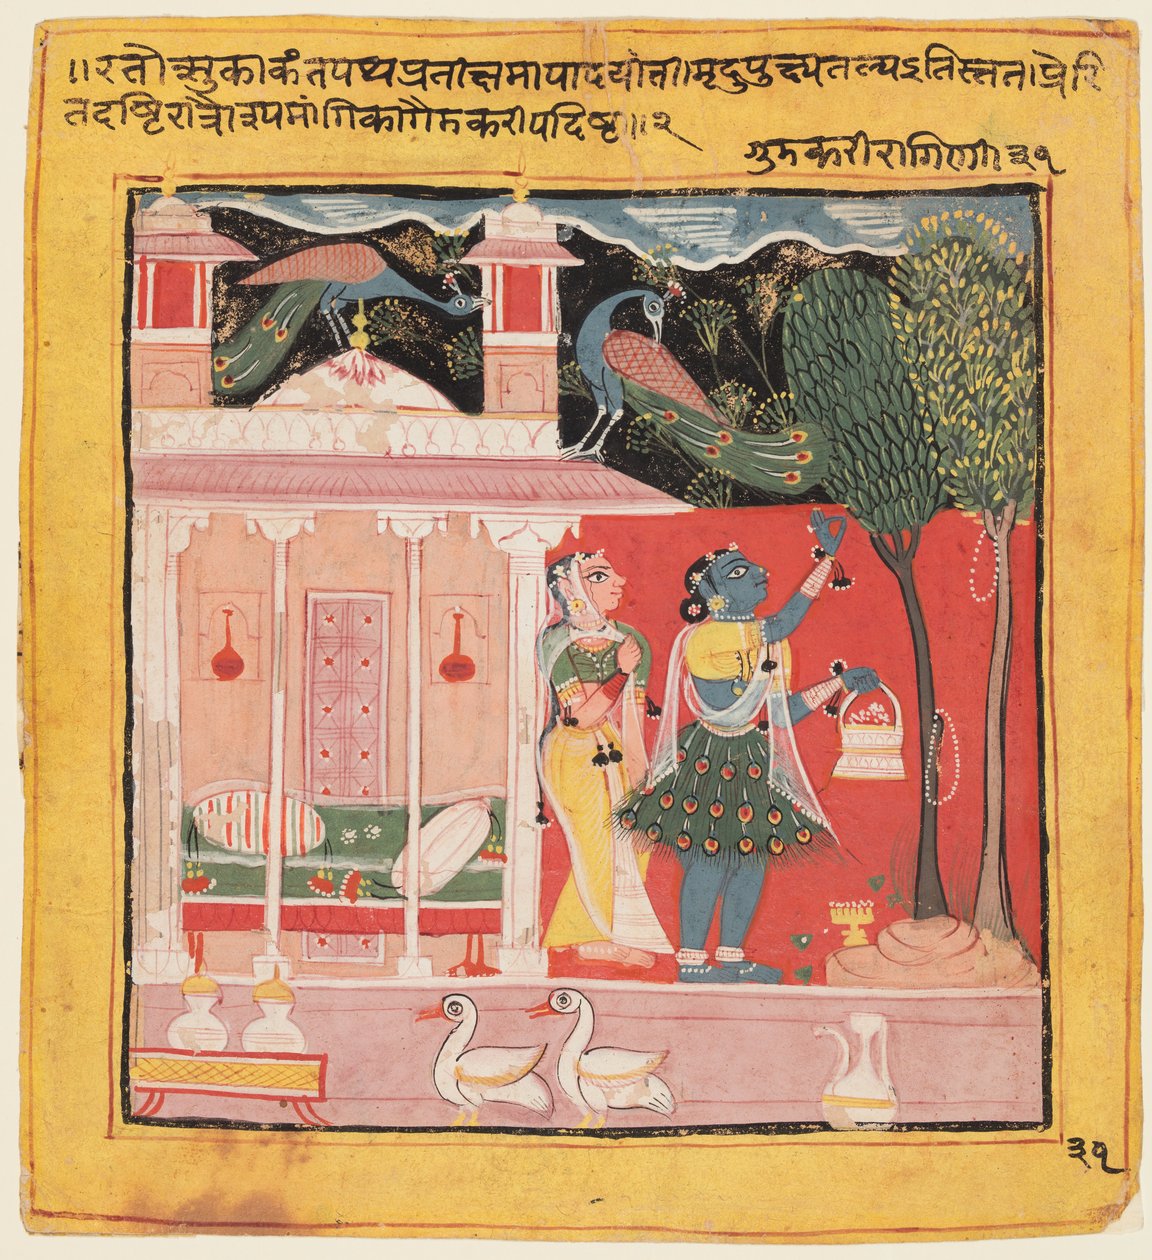 ॥रतोत्सुकाकंतपथप्रतीक्षमापादयोती।मृदुपुच्पतल्पऽतिस्ततः।प्रेरि
तदृष्टिरात्रौऽपमांगिकागौमकरीपदिष्टा॥२
गुमकरीरागिणी।३१
३१